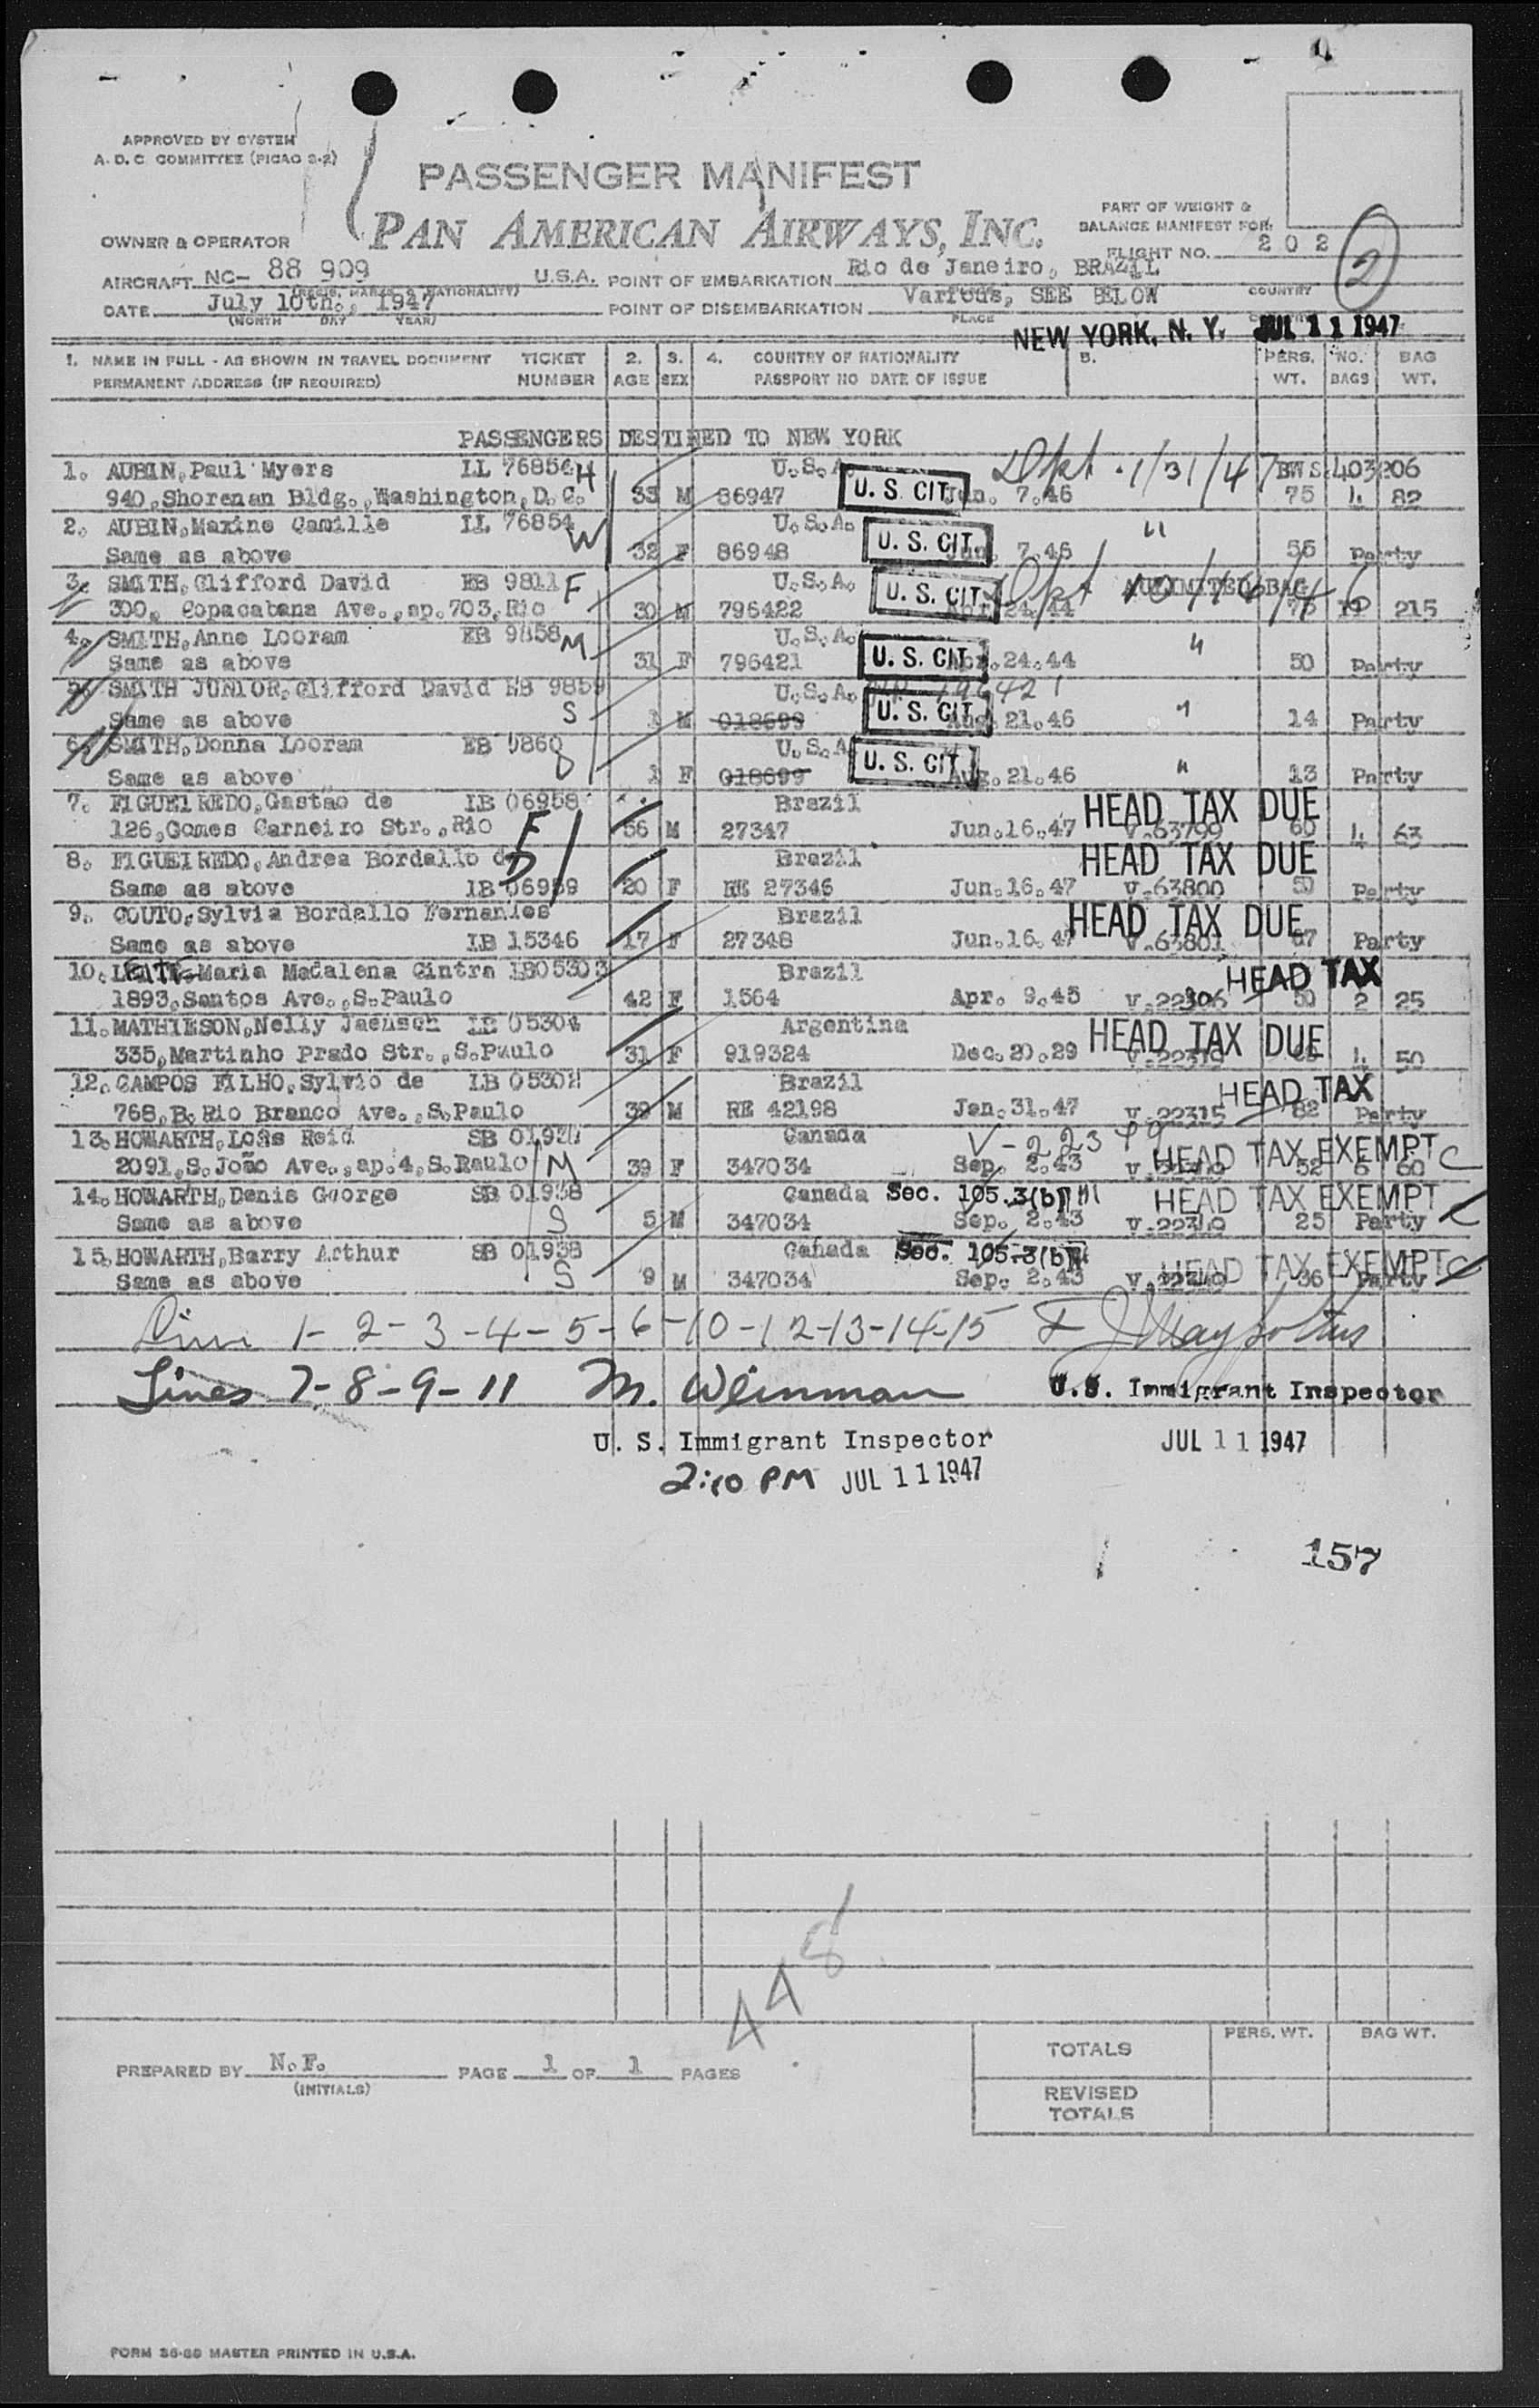 APPROVED BY SYSTEM
A. D. C. COMMITTEE (PICAO S-2)
PASSENGER MANIFEST
PAN AMERICAN AIRWAYS, INC.
PART OF WEIGHT &
BALANCE MANIFEST FOR:
FLIGHT NO. 202
2
OWNER & OPERATOR
AIRCRAFT NC- 88 909 U.S.A.
(REGIS. MARKS & NATIONALITY)
POINT OF EMBARKATION Rio de Janeiro, BRAZIL
PLACE COUNTRY
DATE July 10th., 1947
(MONTH DAY YEAR)
POINT OF DISEMBARKATION Various, SEE BELOW
PLACE
NEW YORK, N. Y. JUL 11 1947
1. NAME IN FULL - AS SHOWN IN TRAVEL DOCUMENT TICKET 2. 3. 4. COUNTRY OF NATIONALITY 5. PERS. NO. BAG
PERMANENT ADDRESS (IF REQUIRED) NUMBER AGE SEX PASSPORT NO DATE OF ISSUE WT. BAGS WT.
PASSENGERS DESTINED TO NEW YORK
1. AUBIN, Paul Myers LL 76854 H U.S.A. 1/31/47 BWS 403206
940, Shoreman Bldg., Washington, D. C. 33 M 86947 U. S. CIT. Jun. 7.46 75 4 82
2. AUBIN, Maxine Camille LL 76854 W U.S.A. "
Same as above 32 F 86948 U. S. CIT. Jun. 7.46 56 Party
3. SMITH, Clifford David EB 9811 F U.S.A.
300, Copacabana Ave., ap.703, Rio 30 M 796422 U. S. CIT. Apr. 24.44 75 215
4. SMITH, Anne Looram EB 9858 M U.S.A. "
Same as above 31 F 796421 U. S. CIT. Apr. 24.44 50 Party
5. SMITH JUNIOR, Clifford David EB 9859 U.S.A. 796421
Same as above S 1 M 018699 U. S. CIT. Aug. 21.46 " 14 Party
6. SMITH, Donna Looram EB 9860 U.S.A.
Same as above D 1 F 018699 U. S. CIT. Aug. 21.46 " 13 Party
7. FIGUEIREDO, Gastao de IB 06958 Brazil HEAD TAX DUE
126, Gomes Carneiro Str., Rio F 56 M 27347 Jun.16.47 V.63799 60 4 63
8. FIGUEIREDO, Andrea Bordallo de Brazil HEAD TAX DUE
Same as above IB 06959 D 20 F RE 27346 Jun.16.47 V.63800 50 Party
9. COUTO, Sylvia Bordallo Fernandes Brazil HEAD TAX DUE
Same as above IB 15346 17 F 27348 Jun.16.47 V.63801 67 Party
10. LEITE, Maria Madalena Cintra IB05303 Brazil HEAD TAX
1893, Santos Ave., S.Paulo 42 F 1564 Apr. 9.45 V.22306 50 2 25
11. MATHIESON, Nelly Jaensch IB 05304 Argentina HEAD TAX DUE
335, Martinho Prado Str., S.Paulo 31 F 919324 Dec.20.29 4 50
12. CAMPOS FILHO, Sylvio de IB 05302 Brazil HEAD TAX
768, B. Rio Branco Ave., S.Paulo 39 M RE 42198 Jan.31.47 V.22315 82 Party
13. HOWARTH, Lois Reid SB 01937 Canada HEAD TAX EXEMPT C
2091, S. João Ave., ap.4, S.Paulo M 39 F 347034 Sep. 2.43 52 6 60
14. HOWARTH, Denis George SB 01938 Canada Sec. 105.3(b) HEAD TAX EXEMPT C
Same as above S 5 M 347034 Sep. 2.43 V.22349 25 Party
15. HOWARTH, Barry Arthur SB 01938 Canada Sec. 105.3(b) HEAD TAX EXEMPT C
Same as above S 9 M 347034 Sep. 2.43 V.22349 36 Party
Line 1-2-3-4-5-6-10-12-13-14-15
Lines 7-8-9-11 M. Weinman U.S. Immigrant Inspector
U. S. Immigrant Inspector JUL 11 1947
2:10 PM JUL 11 1947
157
448
PREPARED BY N.F. PAGE 1 OF 1 PAGES
(INITIALS)
PERS. WT. BAG WT.
TOTALS
REVISED
TOTALS
FORM 35-69 MASTER PRINTED IN U.S.A.